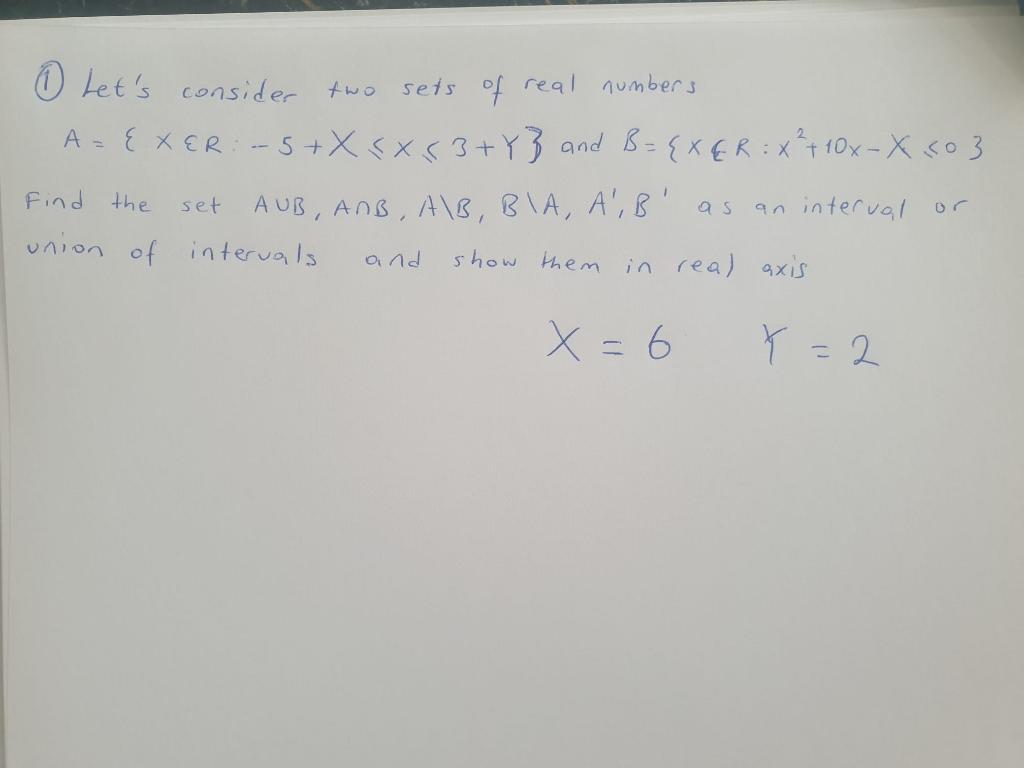 ① Let's consider two sets of real numbers
A = { x ∈ R : -5 + X ≤ x ≤ 3 + Y } and B = { x ∈ R : x² + 10x - X ≤ 0 }
Find the set A∪B, A∩B, A\B, B\A, A', B' as an interval or
union of intervals and show them in real axis
X = 6 Y = 2